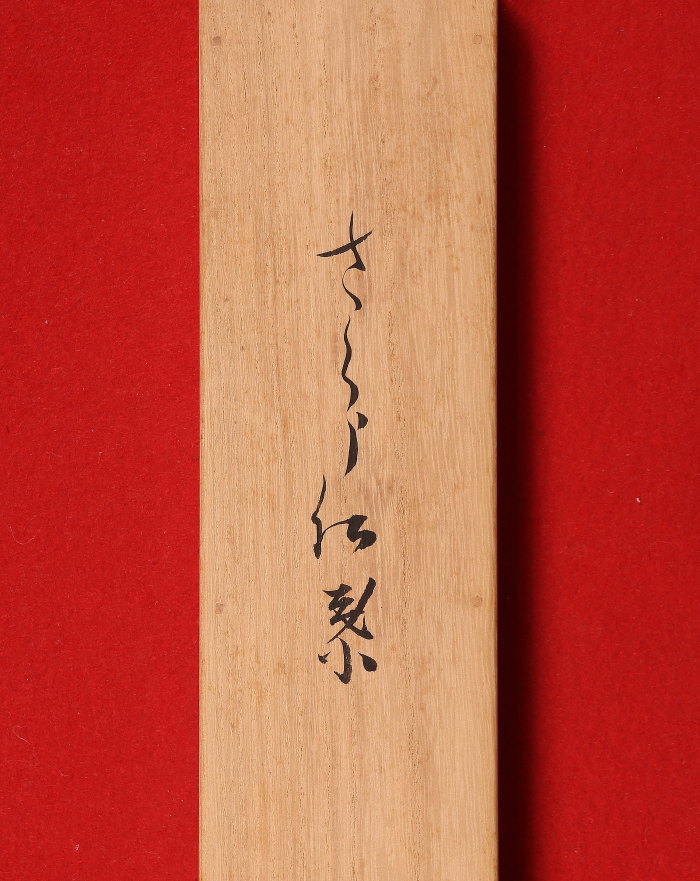 さくら紅葉